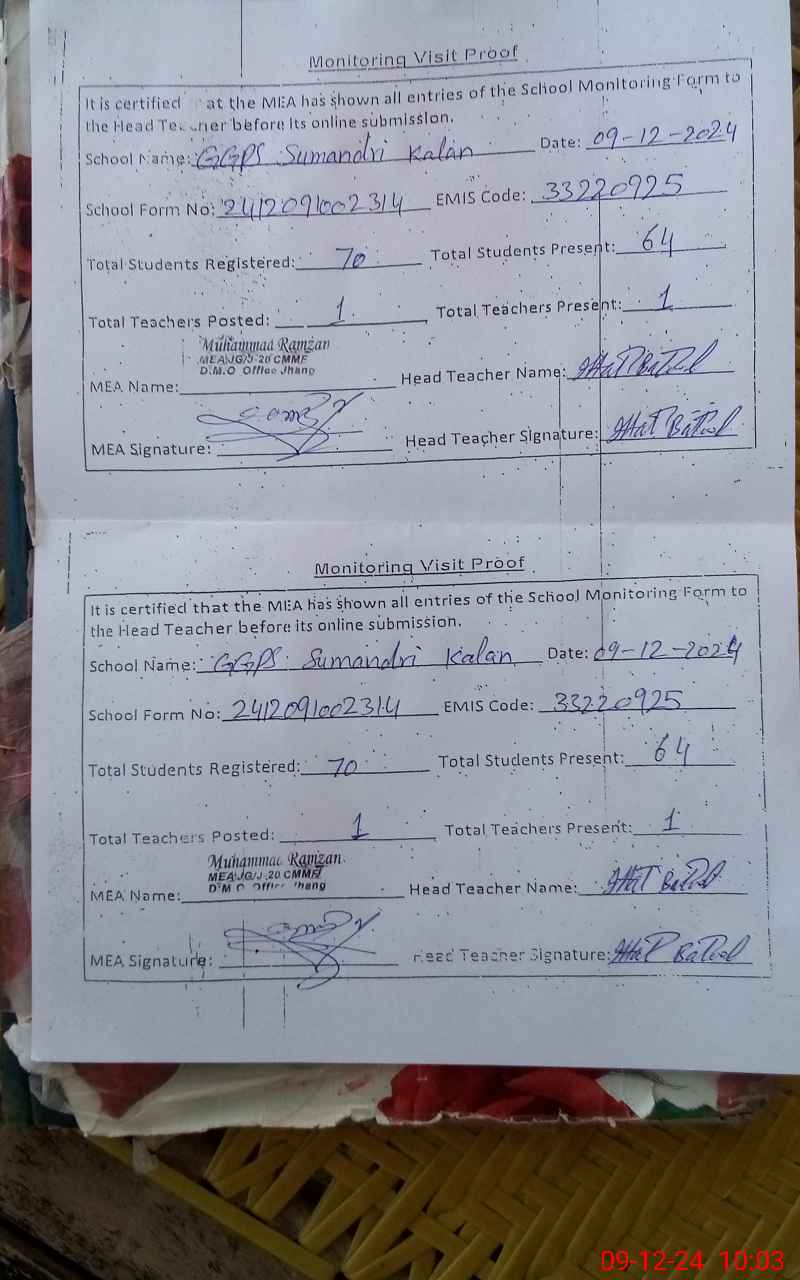 Monitoring Visit Proof
It is certified at the MEA has shown all entries of the School Monitoring Form to
the Head Teacher before its online submission.
School Name: GGPS Sumandri Kalan Date: 09-12-2024
School Form No: 2412091002314 EMIS Code: 33220925
Total Students Registered: 70 Total Students Present: 64
Total Teachers Posted: 1 Total Teachers Present: 1
Muhammad Ramzan
MEA/JG/J-20 CMMF
D.M.O Office Jhang
MEA Name: Head Teacher Name: Batool
MEA Signature: Head Teacher Signature: Batool
Monitoring Visit Proof
It is certified that the MEA has shown all entries of the School Monitoring Form to
the Head Teacher before its online submission.
School Name: GGPS Sumandri Kalan Date: 09-12-2024
School Form No: 2412091002314 EMIS Code: 33220925
Total Students Registered: 70 Total Students Present: 64
Total Teachers Posted: 1 Total Teachers Present: 1
Muhammad Ramzan
MEA/JG/J-20 CMMF
D.M.O Office Jhang
MEA Name: Head Teacher Name: Batool
MEA Signature: Head Teacher Signature: Batool
09-12-24 10:03